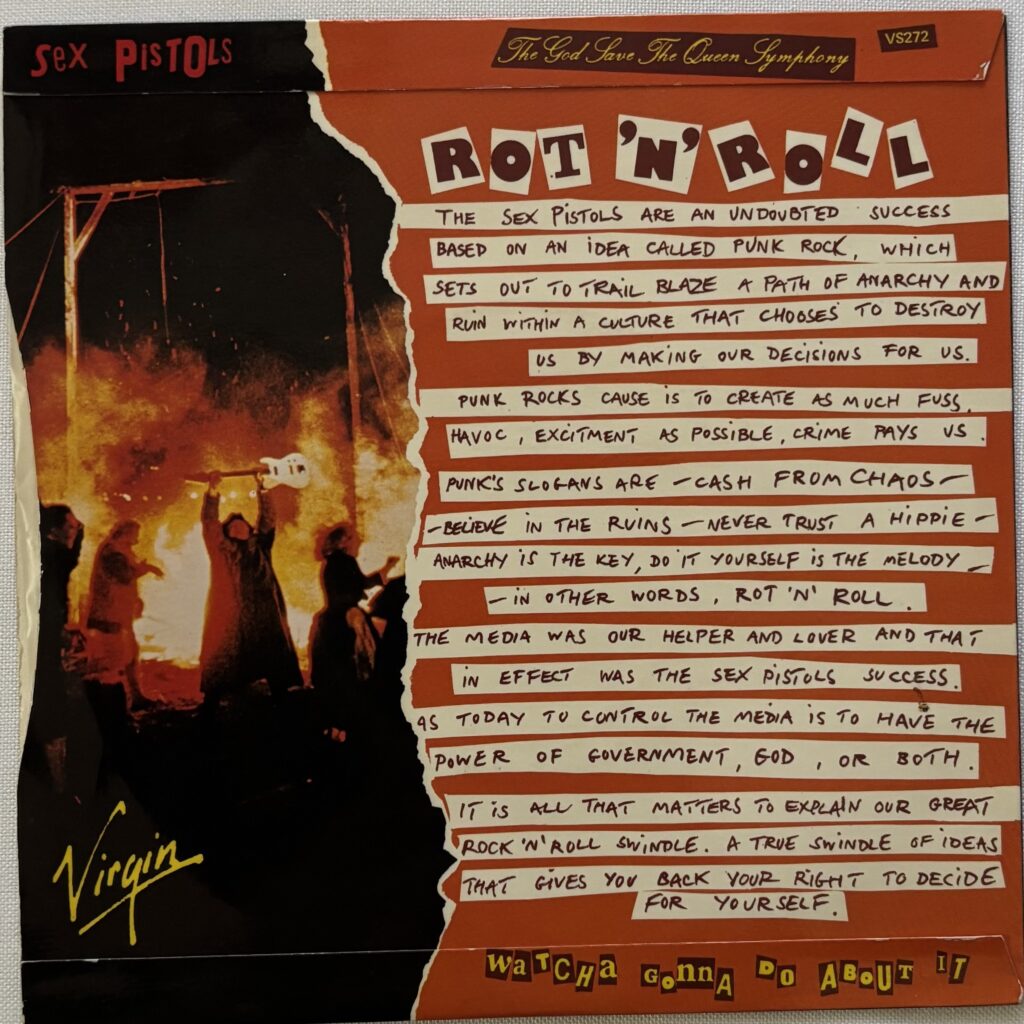 Sex PISTOLs
The God Save The Queen Symphony
VS272
ROT 'N' ROLL
THE SEX PISTOLS ARE AN UNDOUBTED SUCCESS
BASED ON AN IDEA CALLED PUNK ROCK, WHICH
SETS OUT TO TRAIL BLAZE A PATH OF ANARCHY AND
RUIN WITHIN A CULTURE THAT CHOOSES TO DESTROY
US BY MAKING OUR DECISIONS FOR US.
PUNK ROCKS CAUSE IS TO CREATE AS MUCH FUSS,
HAVOC, EXCITMENT AS POSSIBLE, CRIME PAYS US.
PUNK'S SLOGANS ARE - CASH FROM CHAOS -
- BELIEVE IN THE RUINS - NEVER TRUST A HIPPIE -
ANARCHY IS THE KEY, DO IT YOURSELF IS THE MELODY -
- IN OTHER WORDS, ROT 'N' ROLL.
THE MEDIA WAS OUR HELPER AND LOVER AND THAT
IN EFFECT WAS THE SEX PISTOLS SUCCESS.
AS TODAY TO CONTROL THE MEDIA IS TO HAVE THE
POWER OF GOVERNMENT, GOD, OR BOTH.
IT IS ALL THAT MATTERS TO EXPLAIN OUR GREAT
ROCK 'N' ROLL SWINDLE. A TRUE SWINDLE OF IDEAS
THAT GIVES YOU BACK YOUR RIGHT TO DECIDE
FOR YOURSELF.
Virgin
WaTCHa GoNNA DO ABOUT IT